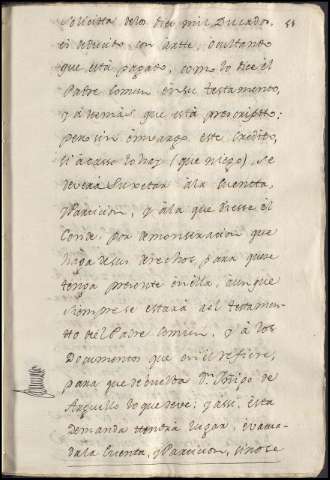 Solicitta delos diez mil Ducados, 55
es deducido con arte, ocultando
que està pagado, como lo dice el
Padre Comun en su testamento,
y ademàs que està prescriptto:
pero sin embargo este Credito,
si acasso lo hay (que niego) se
deverà Suxetar à la Cuentta,
y Particion, y à la que diesse el
Conde, por demonstracion que
haga de sus derechos, para que se
tenga presente en ella, aunque
siempre se estarà al testamen-
tto del Padre Comun, y à los
Documentos que en èl refiere,
para que debuelva Dn. Iñigo de
Arguello lo que deve; y assi, esta
demanda tendrà lugar, evacua-
da la Cuenta, y Particion, sino se